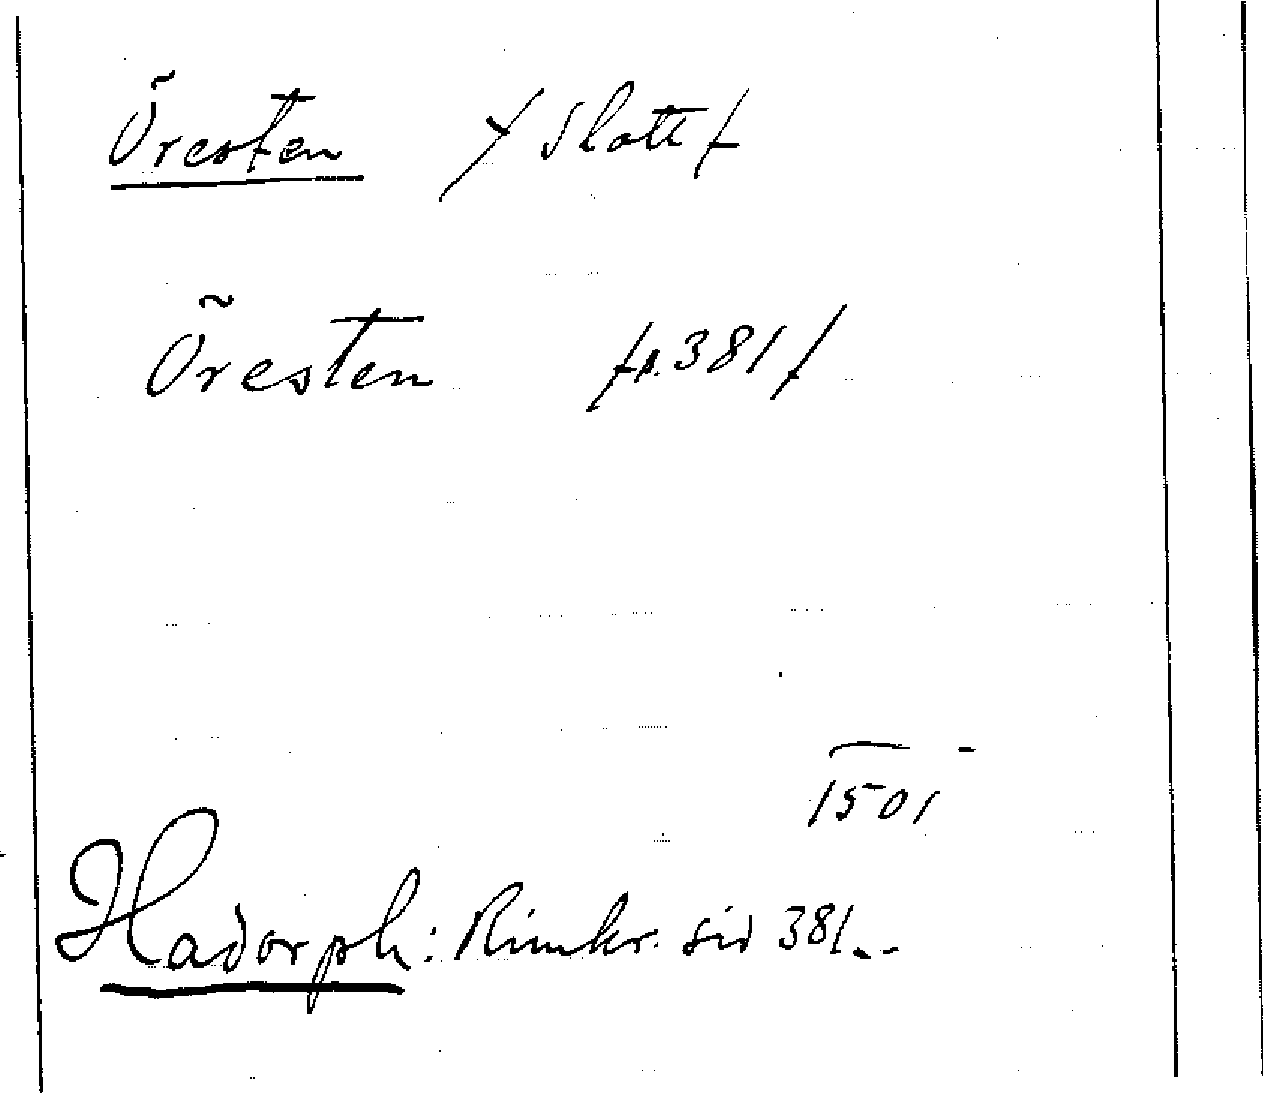 Öresten / Slott /
Öresten /s. 381/
1501
Hadorph: Rimkr. sid 381..